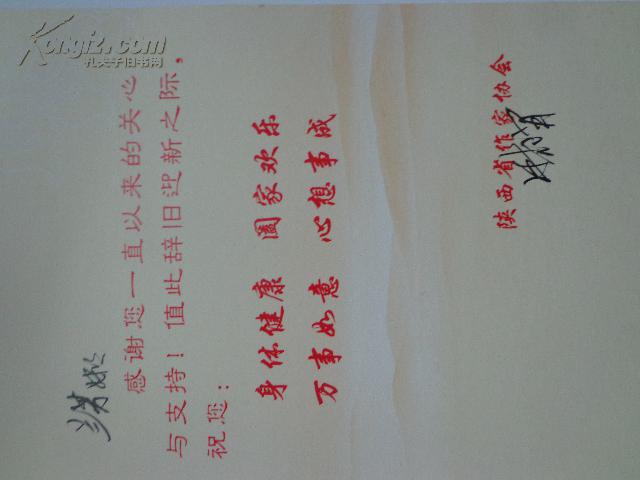 Kongfz.com
孔夫子旧书网
感谢您一直以来的关心
与支持！值此辞旧迎新之际，
祝您：
身体健康 阖家欢乐
万事如意 心想事成
陕西省作家协会